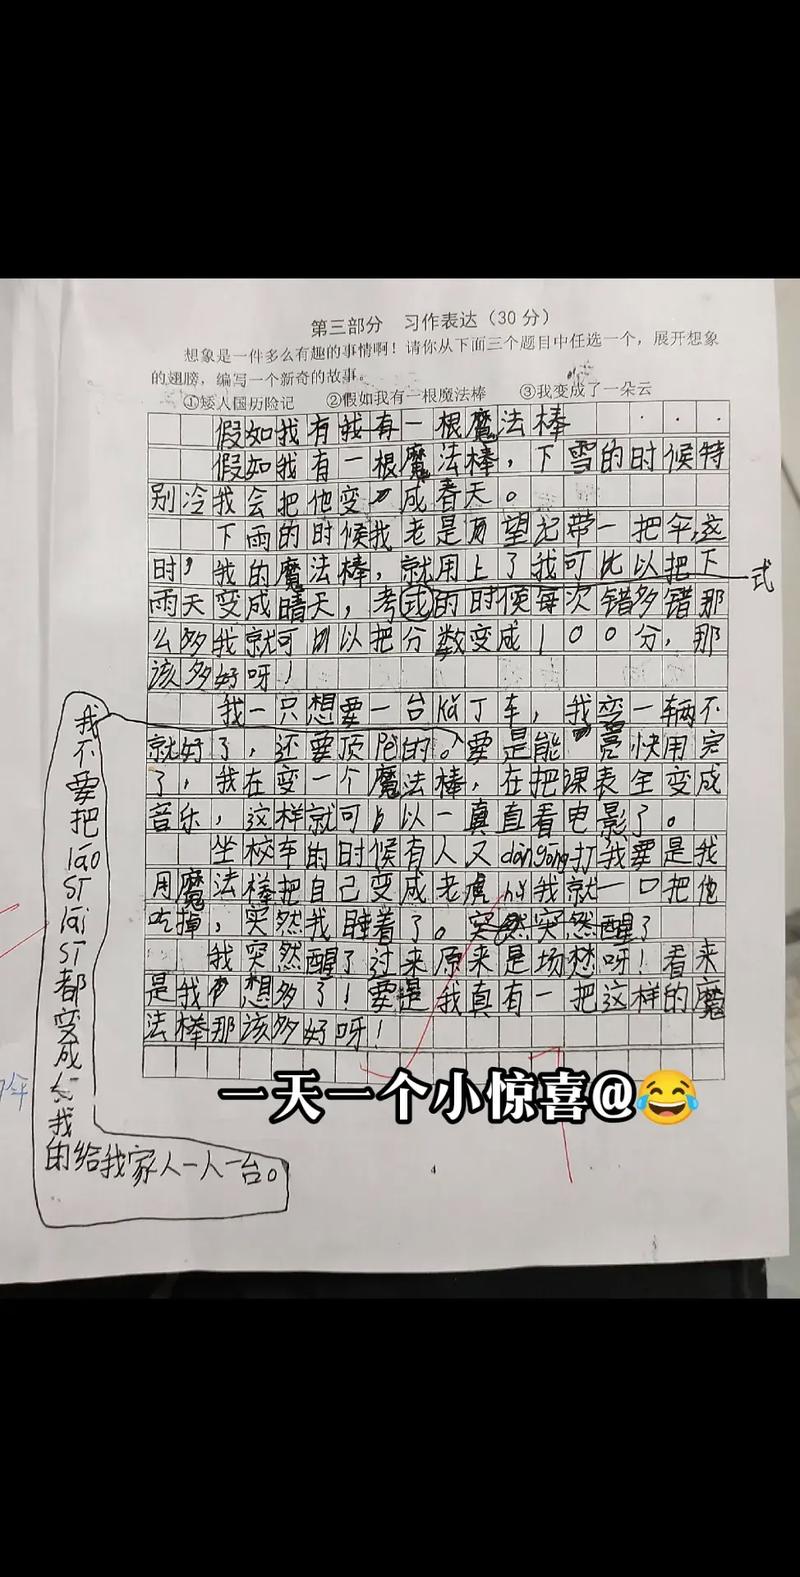 第三部分 习作表达（30分）
想象是一件多么有趣的事情啊！请你从下面三个题目中任选一个，展开想象
的翅膀，编写一个新奇的故事。
①矮人国历险记 ②假如我有一根魔法棒 ③我变成了一朵云
假如我有我有一根魔法棒
假如我有一根魔法棒，下雪的时候特
别冷我会把他变成春天。
下雨的时候我老是万望记带一把伞，这
时，我的魔法棒，就用上了我可比以把下
雨天变成晴天，考试的时候每次错多错那
式
么多我就可以把分数变成100分，那
该多好呀！
我一只想要一台kǎ丁车，我变一辆不
就好了，还要顶配的。要是能亮快用完
了，我在变一个魔法棒，在把课表全变成
音乐，这样就可以一真直看电影了。
坐校车的时候有人又dòngǒng打我要是我
用魔法棒把自己变成老虎我就一口把他
吃掉，突然我睡着了。突然突然醒了
我突然醒了过来原来是场梦呀！看来
是我想多了！要是我真有一把这样的魔
法棒那该多好呀！
我不要把láoSTláiST都变成我的给我家人一人一台。
4
一天一个小惊喜@😂